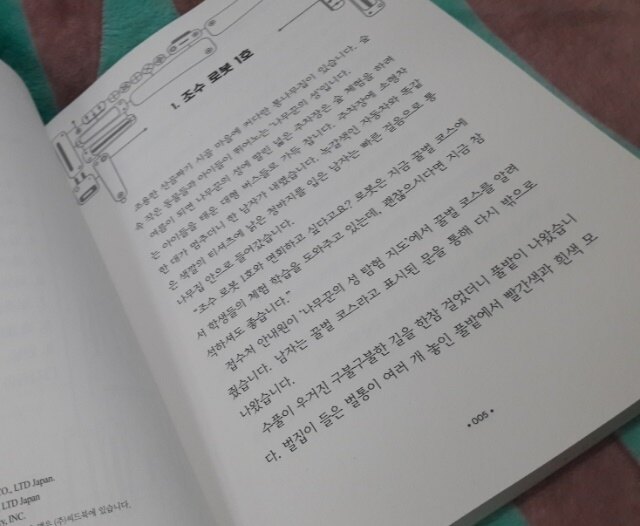 1. 조수 로봇 1호
조용한 산골짜기 시골 마을에 커다란 통나무집이 있습니다. 숲
속 작은 동물들과 아이들이 뛰어노는 '나무꾼의 성'입니다.
여름이 되면 나무꾼의 성에 딸린 넓은 주차장은 숲 체험을 하려
는 아이들을 태운 대형 버스들로 가득 찹니다. 주차장에 소형차
한 대가 멈추더니 한 남자가 내렸습니다. 녹갈색인 자동차와 똑같
은 색깔의 티셔츠에 낡은 청바지를 입은 남자는 빠른 걸음으로 통
나무집 안으로 들어갔습니다.
"조수 로봇 1호와 면회하고 싶다고요? 로봇은 지금 꿀벌 코스에
서 학생들의 체험 학습을 도와주고 있는데, 괜찮으시다면 지금 참
석하셔도 좋습니다."
접수처 안내원이 '나무꾼의 성 탐험 지도'에서 꿀벌 코스를 알려
줬습니다. 남자는 꿀벌 코스라고 표시된 문을 통해 다시 밖으로
나왔습니다.
수풀이 우거진 구불구불한 길을 한참 걸었더니 풀밭이 나왔습니
다. 벌집이 든 벌통이 여러 개 놓인 풀밭에서 빨간색과 흰색 모
•005•
CO., LTD Japan.
LTD Japan
rs, INC.
(주)씨드북에 있습니다.